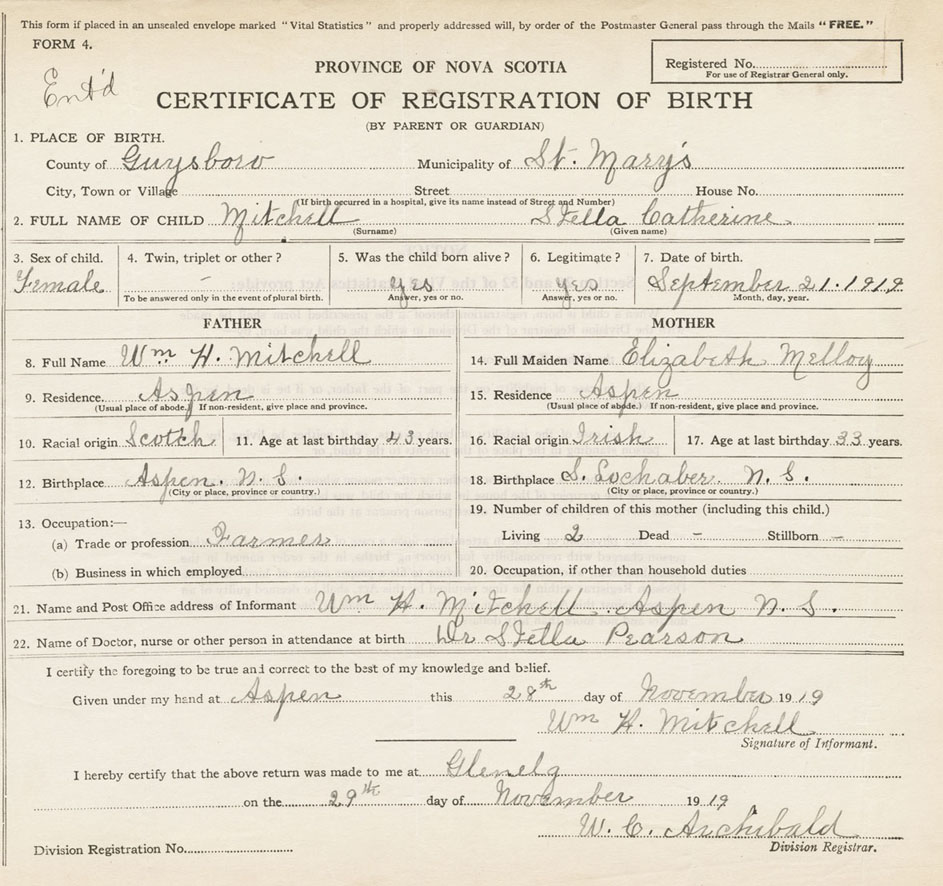 This form if placed in an unsealed envelope marked "Vital Statistics" and properly addressed will, by order of the Postmaster General pass through the Mails "FREE."
FORM 4.
Registered No.
For use of Registrar General only.
Ent'd
PROVINCE OF NOVA SCOTIA
CERTIFICATE OF REGISTRATION OF BIRTH
(BY PARENT OR GUARDIAN)
1. PLACE OF BIRTH.
County of Guysboro Municipality of St. Mary's
City, Town or Village Street House No.
(If birth occurred in a hospital, give its name instead of Street and Number)
2. FULL NAME OF CHILD Mitchell Stella Catherine
(Surname) (Given name)
3. Sex of child. 4. Twin, triplet or other? 5. Was the child born alive? 6. Legitimate? 7. Date of birth.
Female - Yes Yes September 21. 1919.
To be answered only in the event of plural birth. Answer, yes or no. Answer, yes or no. Month, day, year.
FATHER MOTHER
8. Full Name Wm H. Mitchell 14. Full Maiden Name Elizabeth Melloy
9. Residence. Aspen 15. Residence Aspen
(Usual place of abode.) If non-resident, give place and province. (Usual place of abode.) If non-resident, give place and province.
10. Racial origin Scotch 11. Age at last birthday 43 years. 16. Racial origin Irish 17. Age at last birthday 33 years.
12. Birthplace Aspen. N. S. 18. Birthplace S. Lochaber N. S.
(City or place, province or country.) (City or place, province or country.)
13. Occupation:— 19. Number of children of this mother (including this child.)
(a) Trade or profession Farmer Living 2 Dead - Stillborn -
(b) Business in which employed 20. Occupation, if other than household duties
21. Name and Post Office address of Informant Wm H. Mitchell Aspen N. S.
22. Name of Doctor, nurse or other person in attendance at birth Dr Stella Pearson
I certify the foregoing to be true and correct to the best of my knowledge and belief.
Given under my hand at Aspen this 28th day of November 1919
Wm H. Mitchell
Signature of Informant.
I hereby certify that the above return was made to me at Glenelg
on the 29th day of November 1919
W. C. Archibald
Division Registration No. Division Registrar.